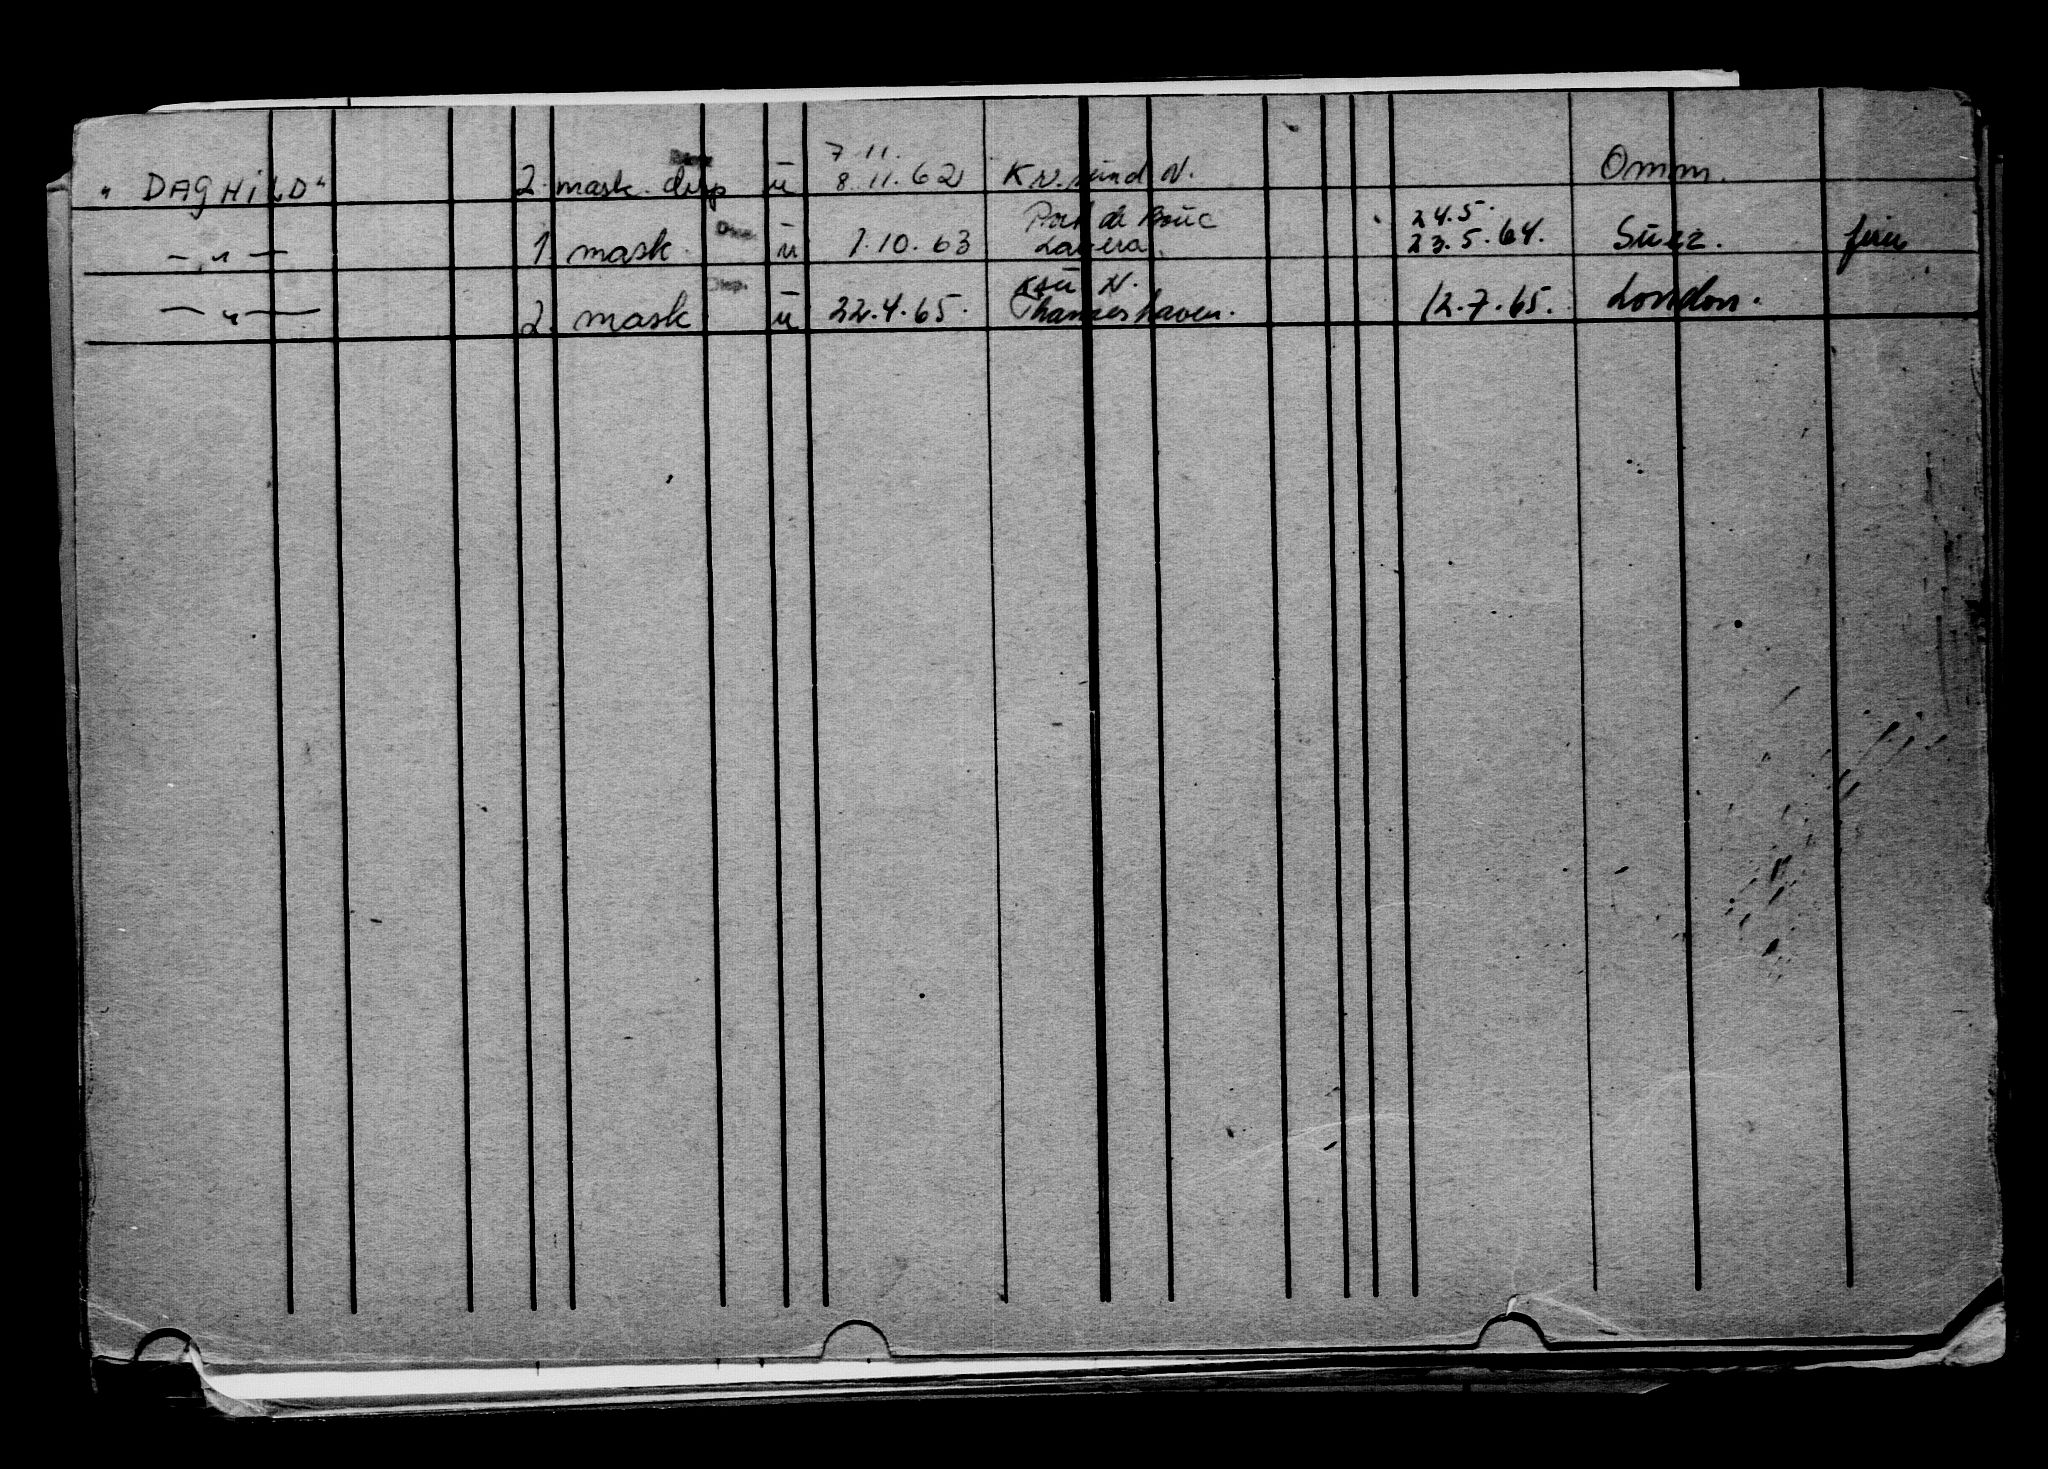 7 11.
"DAGHILD" 2. mask. disp ū 8.11.62 Kr.sund N. Omm.
Port de Boūc 24.5.
— " — 1 mask. Disp. ū 1.10.63 Lavera. 23.5.64. Sūez. ferie
Disp. Ksū N.
— " — 2. mask ū 22.4.65. Thameshaven. 12.7.65. London.